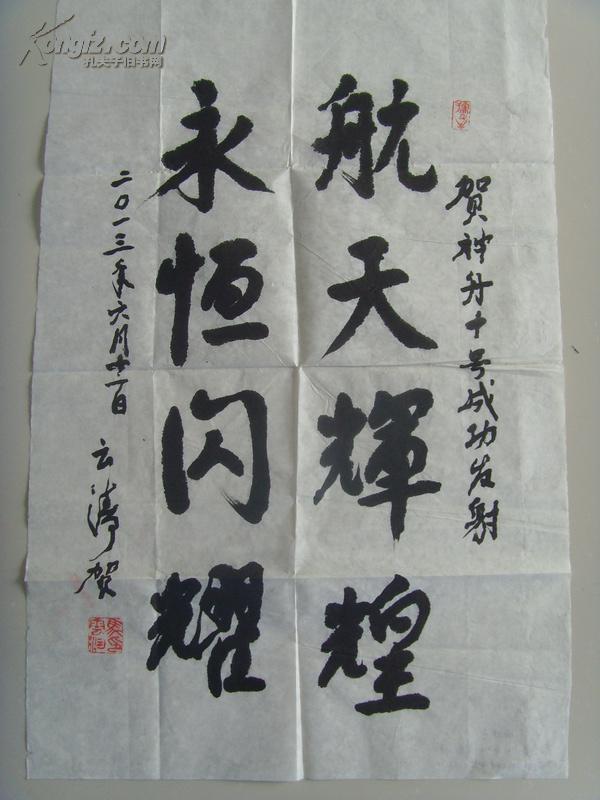 贺神舟十号成功发射
航天辉煌
永恒闪耀
二〇一三年六月十一日 云涛贺
Kongfz.com
孔夫子旧书网